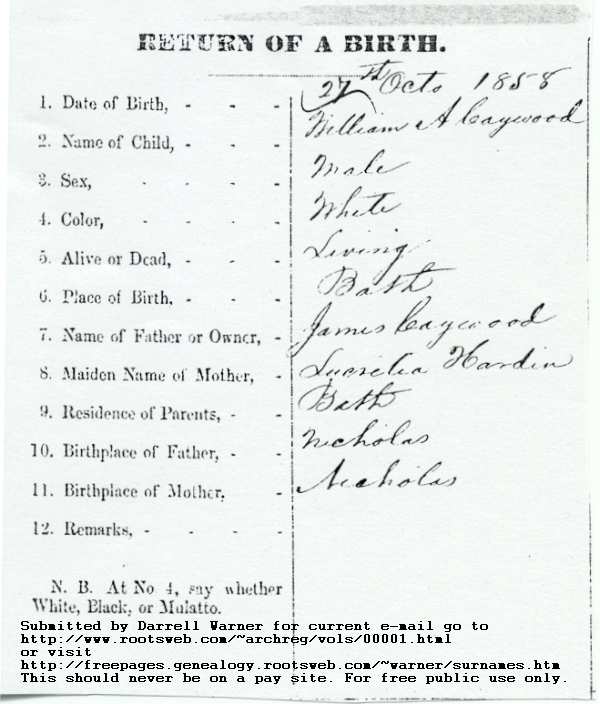 RETURN OF A BIRTH.
1. Date of Birth, - - - 27th Octo 1858
2. Name of Child, - - - William A Caywood
3. Sex, - - - Male
4. Color, - - - White
5. Alive or Dead, - - - Living
6. Place of Birth, - - - Bath
7. Name of Father or Owner, - James Caywood
8. Maiden Name of Mother, - Lucrelia Hardin
9. Residence of Parents, - - Bath
10. Birthplace of Father, - - Nicholas
11. Birthplace of Mother, - Nicholas
12. Remarks, - - - -
N. B. At No 4, say whether
White, Black, or Mulatto.
Submitted by Darrell Warner for current e-mail go to
http://www.rootsweb.com/~archreg/vols/00001.html
or visit
http://freepages.genealogy.rootsweb.com/~warner/surnames.htm
This should never be on a pay site. For free public use only.